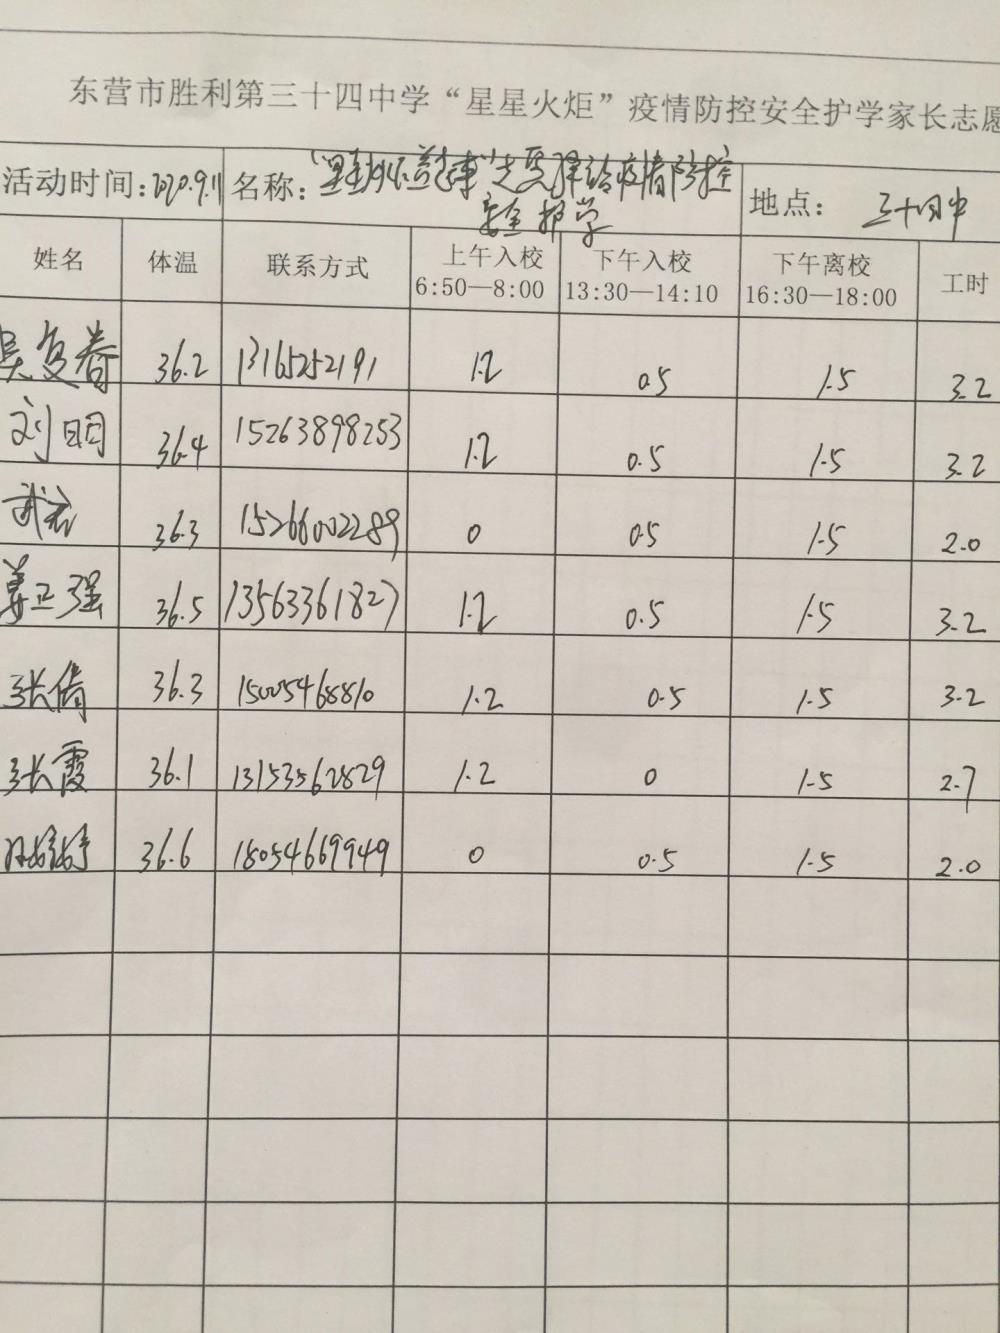 东营市胜利第三十四中学“星星火炬”疫情防控安全护学家长志愿
活动时间:2020.9.11 名称: 疫情防控 地点: 三十四中
安全护学
姓名 体温 联系方式 上午入校 下午入校 下午离校 工时
6:50—8:00 13:30—14:10 16:30—18:00
吴复春 36.2 13165252191 1.2 0.5 1.5 3.2
刘明 36.4 15263898253 1.2 0.5 1.5 3.2
武宏 36.3 15266002289 0 0.5 1.5 2.0
姜卫强 36.5 13563361827 1.2 0.5 1.5 3.2
张倩 36.3 15005468810 1.2 0.5 1.5 3.2
张霞 36.1 13153562829 1.2 0 1.5 2.7
36.6 18054669949 0 0.5 1.5 2.0